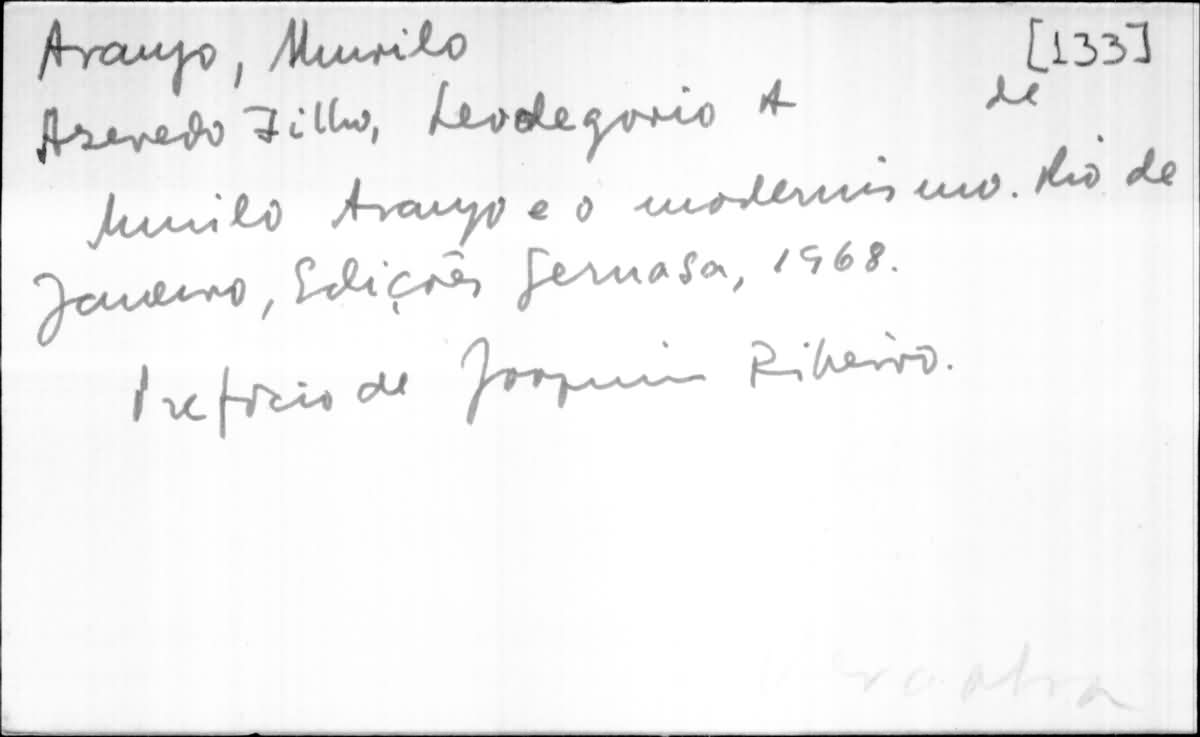 Araujo, Murilo [133]
Azevedo Filho, Leodegario A de
Murilo Araujo e o modernismo. Rio de
Janeiro, Edições Gernasa, 1968.
Prefácio de Joaquim Ribeiro.